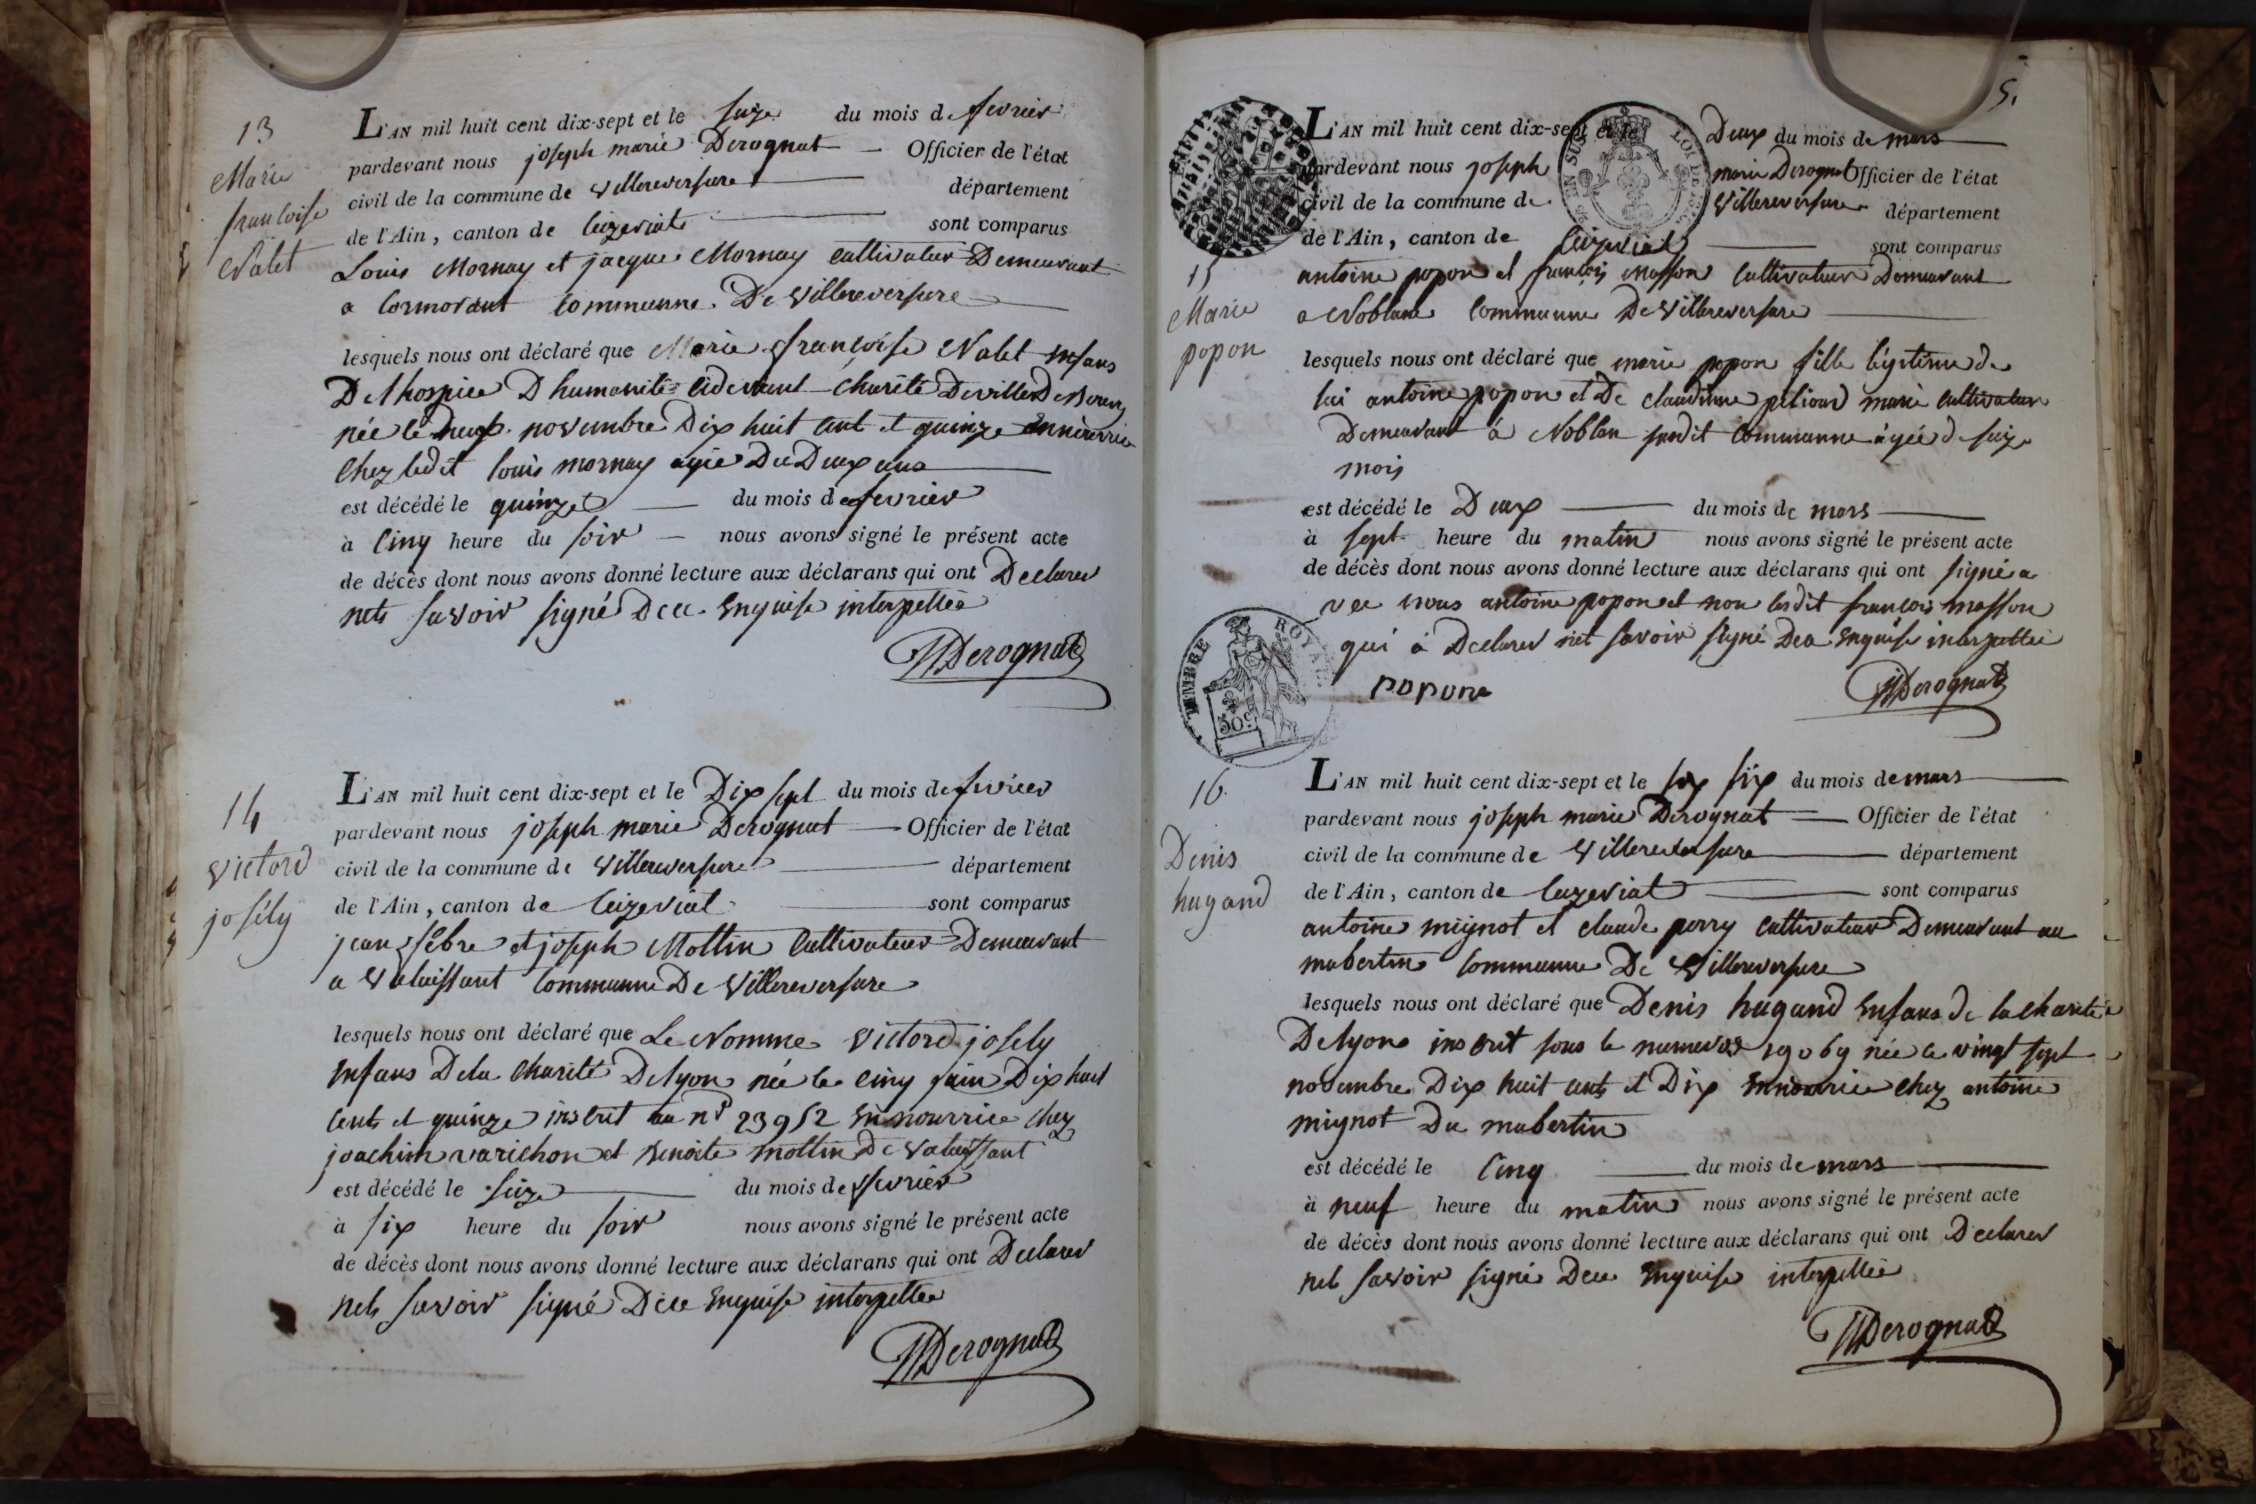 13
Marie
francoise
Nalet
L'AN mil huit cent dix-sept et le seize du mois de fevrier
pardevant nous joseph marie Derognat Officier de l'état
civil de la commune de Villereversure département
de l'Ain, canton de Ceizeriat sont comparus
Louis Mornay et jacque Mornay cultivateur Demeurant
a Cormorant communne De Villereversure
lesquels nous ont déclaré que Marie françoise Nalet enfans
De l'hospice D humanité cidevant charité Deville De Bourg
née le neuf novembre Dix huit cent et quinze ennourrice
chez ledit louis mornay agée De Deux ans
est décédé le quinze du mois de fevrier
à cinq heure du soir nous avons signé le présent acte
de décès dont nous avons donné lecture aux déclarans qui ont Declarer
nets savoir signé Dece enquise interpellée
JMDerognat
14
Victord
josély
L'AN mil huit cent dix-sept et le Dix sept du mois de fevrier
pardevant nous joseph marie Derognat Officier de l'état
civil de la commune de Villereversure département
de l'Ain, canton de Ceizeriat sont comparus
jean febre et joseph Mottin cultivateur Demeurant
a Valaissant communne De Villereversure
lesquels nous ont déclaré que Le Nomme Victord josely
enfans Dela charité Delyon née le cinq juin Dix huit
cents et quinze inscrit au n° 23952 ennourrice chez
joachim varichon et Benoite mottin De valaissant
est décédé le seize du mois de fevrier
à six heure du soir nous avons signé le présent acte
de décès dont nous avons donné lecture aux déclarans qui ont Declarer
nets savoir signé Dece enquise interpellée
JMDerognat
5.
15
Marie
popon
L'AN mil huit cent dix-sept et le Deux du mois de mars
pardevant nous joseph marie Derognat Officier de l'état
civil de la commune de Villereversure département
de l'Ain, canton de Ceizeriat sont comparus
antoine popon et françois masson cultivateur Demeurant
a Noblan communne De Villereversure
lesquels nous ont déclaré que marie popon fille légitime de
lui antoine popon et De claudinne peliond marie cultivateur
Demeurant à Noblan susdit communne agée de seize
mois
est décédé le Deux du mois de mars
à sept heure du matin nous avons signé le présent acte
de décès dont nous avons donné lecture aux déclarans qui ont signé a
vec nous antoine popon et non lesdit françois masson
qui à Declarer net savoir signé Dece enquise interpellée
popon
JMDerognat
TIMBRE ROYAL
50 c
16.
Denis
hugand
L'AN mil huit cent dix-sept et le six du mois de mars
pardevant nous joseph marie Derognat Officier de l'état
civil de la commune de Villereversure département
de l'Ain, canton de Ceizeriat sont comparus
antoine mignot et claude perry cultivateur Demeurant au
mabertin communne De Villereversure
lesquels nous ont déclaré que Denis hugand enfans de la charité
Delyon inscrit sous le numeros 19069 née le vingt sept
novembre Dix huit cents et Dix ennourrice chez antoine
mignot Du mabertin
est décédé le cinq du mois de mars
à neuf heure du matin nous avons signé le présent acte
de décès dont nous avons donné lecture aux déclarans qui ont Declarer
net savoir signé Dece enquise interpellée
JMDerognat